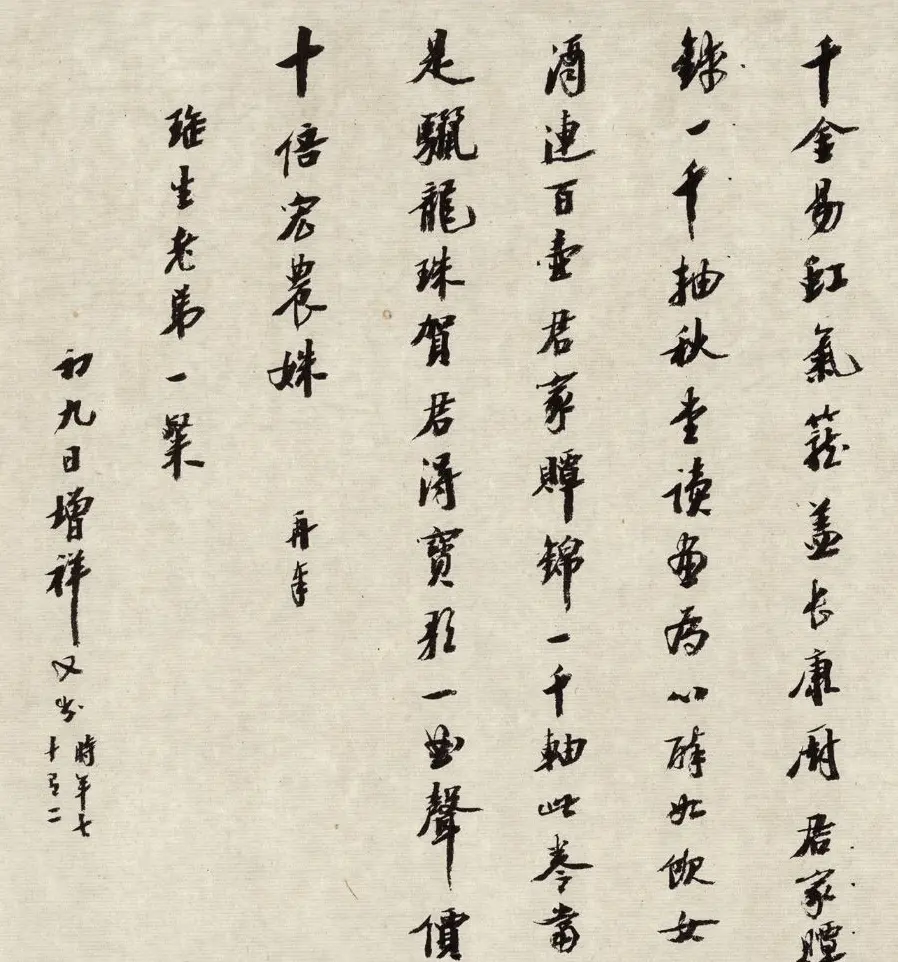 千金易虹氣籠蓋長康厨君家贉
錦一千抽秋堂讀画為心醉如飲女
酒連百壺君家贉錦一千軸此卷當
是驪龍珠賀君得寶歌一曲聲價
十倍宏農姝 再筆
生老弟一粲
初九日增祥又
時年七
十有二